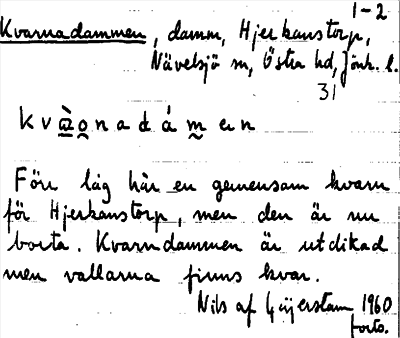 1-2
Kvarnadammen, damm, Hjerkanstorp,
Nävelsjö sn, Östra hd, Jönk. l.
31
Förr låg här en gemensam kvarn
för Hjerkanstorp, men den är nu
borta. Kvarndammen är utdikad
men vallarna finns kvar.
Nils af Geijerstam 1960
forts.